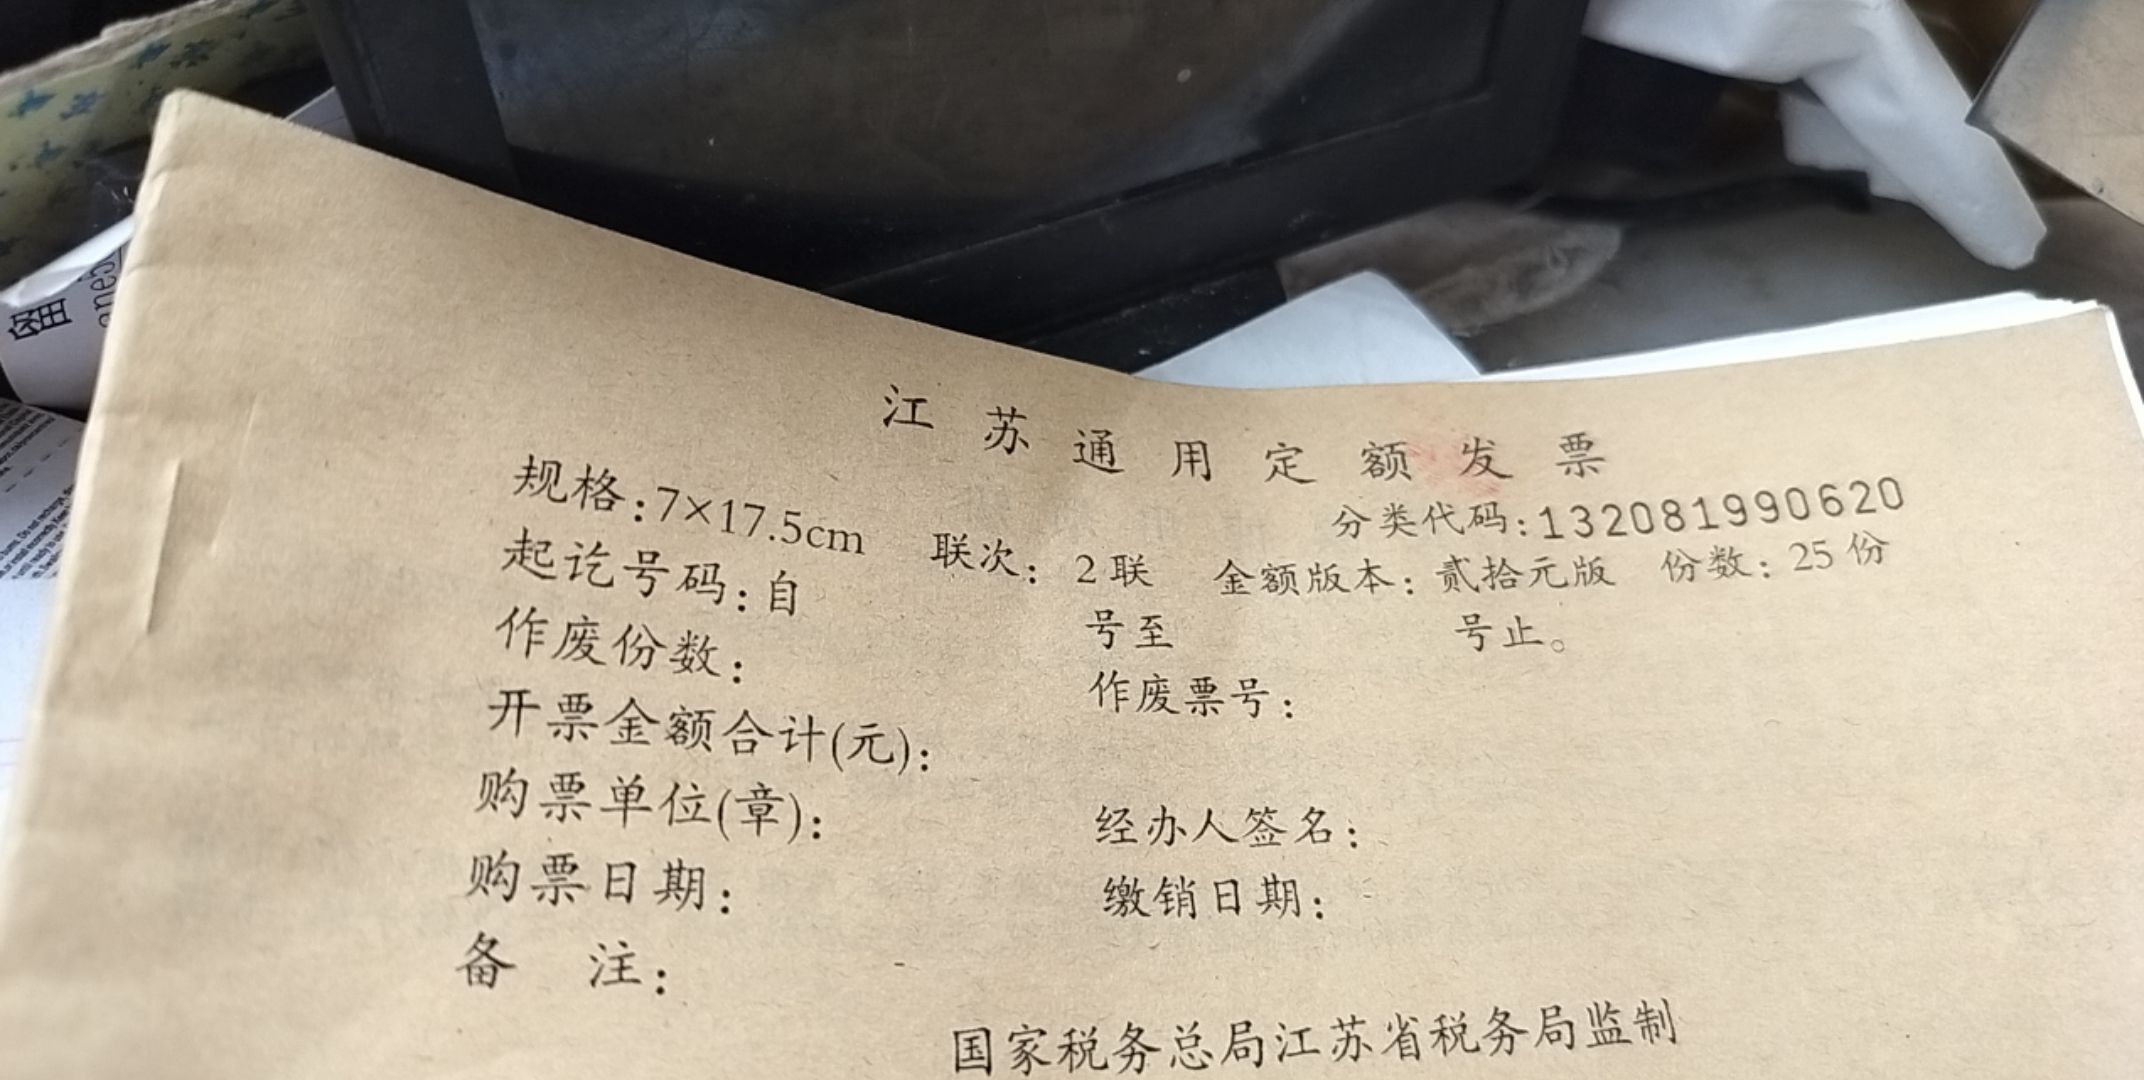 江苏通用定额发票
分类代码:132081990620
规格:7×17.5cm 联次: 2联 金额版本: 贰拾元版 份数: 25份
起讫号码:自 号至 号止。
作废份数: 作废票号:
开票金额合计(元):
购票单位(章): 经办人签名:
购票日期: 缴销日期:
备 注:
国家税务总局江苏省税务局监制